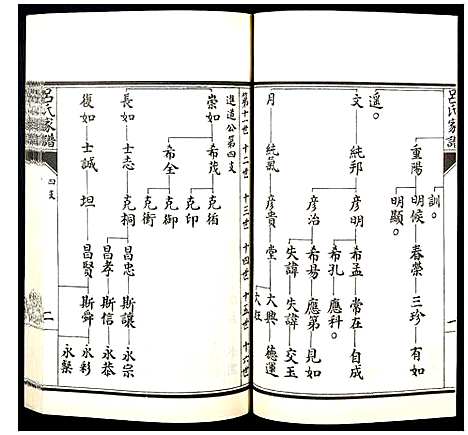 呂氏家譜
訓。
重陽 明候 春榮 三珍 有如
明顯。
遥。
文 純邦 彦明 希孟 常在 自成
希孔 應科。
彦治 希易 應第 見如
失諱 失諱 交玉
月 純氣 彦貴 堂 大興 德運
大班
第十一世 十二世 十三世 十四世 十五世 十六世
進道公第四支
崇如 希茂 克循
克印
希全 克御
克衛
長如 士志 克桐 昌忠 斯讓 永宗
昌孝 斯信 永恭
復如 士誠 坦 昌賢 斯舜 永彩
永繫
呂氏家譜
四支
二